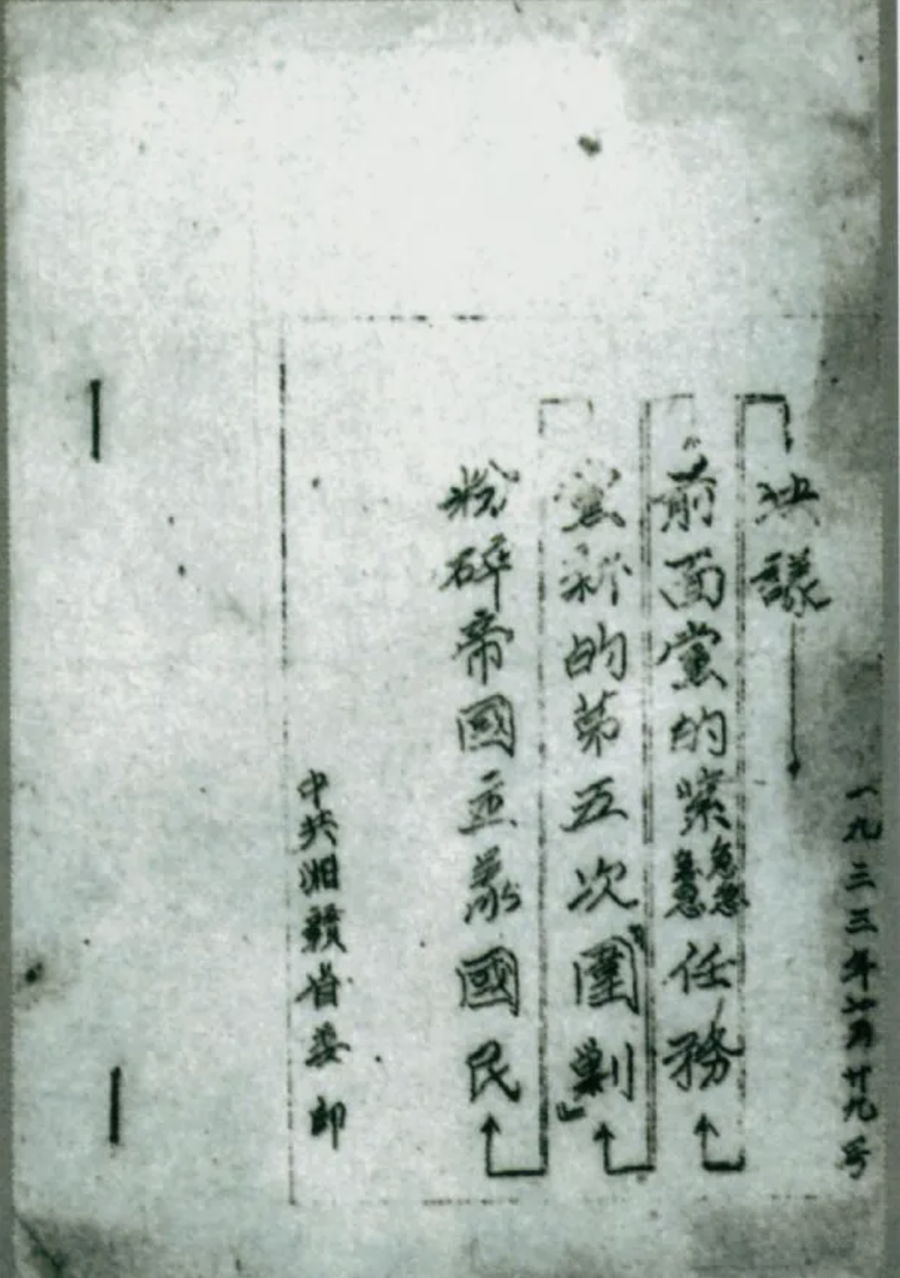 中共湘贛省委印
粉碎帝國主義國民
黨新的第五次『圍剿』
前面黨的緊急任務
決議
一九三三年 月廿九号